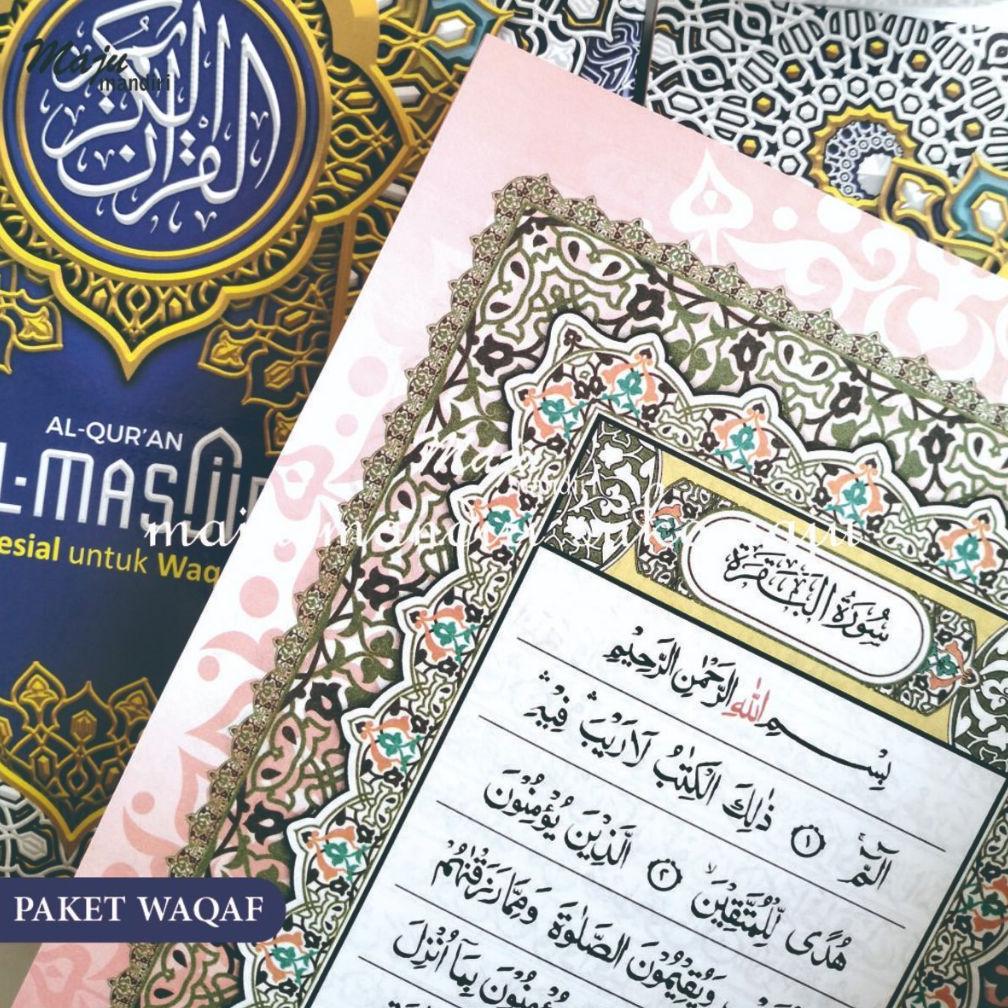 Maju
mandiri
القرآن الكريم
AL-QUR'AN
L-MASJID
esial untuk Waq
Maju
maju mandiri buku saku
سُورَةُ الْبَقَرَةِ
بِسْمِ اللّٰهِ الرَّحْمٰنِ الرَّحِيْمِ
الۤمّۤ ۝١ ذٰلِكَ الْكِتٰبُ لَا رَيْبَ ۛ فِيْهِ ۛ
هُدًى لِّلْمُتَّقِيْنَۙ ۝٢ الَّذِيْنَ يُؤْمِنُوْنَ
وَيُقِيْمُوْنَ الصَّلٰوةَ وَمِمَّا رَزَقْنٰهُمْ
يُؤْمِنُوْنَ بِمَآ اُنْزِلَ
PAKET WAQAF